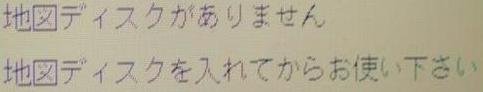 地図ディスクがありません
地図ディスクを入れてからお使い下さい